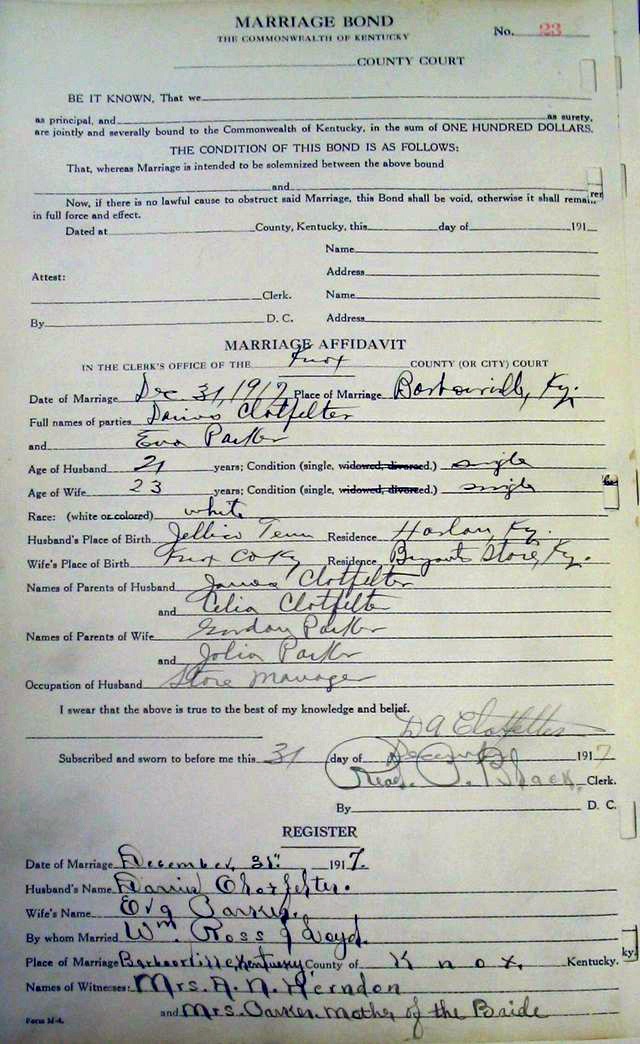 MARRIAGE BOND
THE COMMONWEALTH OF KENTUCKY
No. 23
COUNTY COURT
BE IT KNOWN, That we
as principal, and as surety,
are jointly and severally bound to the Commonwealth of Kentucky, in the sum of ONE HUNDRED DOLLARS.
THE CONDITION OF THIS BOND IS AS FOLLOWS:
That, whereas Marriage is intended to be solemnized between the above bound
and
Now, if there is no lawful cause to obstruct said Marriage, this Bond shall be void, otherwise it shall remain
in full force and effect.
Dated at County, Kentucky, this day of 191
Name
Address
Attest:
Clerk. Name
By D. C. Address
MARRIAGE AFFIDAVIT
IN THE CLERK'S OFFICE OF THE Knox COUNTY (OR CITY) COURT
Date of Marriage Dec 31, 1917 Place of Marriage Barbourville, Ky.
Full names of parties Clotfelter
and Eva Parker
Age of Husband 21 years; Condition (single, widowed, divorced.) single
Age of Wife 23 years; Condition (single, widowed, divorced.) single
Race: (white or colored) white
Husband's Place of Birth Jellico Tenn Residence Harlan, Ky.
Wife's Place of Birth Knox Co Ky Residence Bryants Store, Ky.
Names of Parents of Husband James Clotfelter
and Celia Clotfelter
Names of Parents of Wife Gorday Parker
and Julia Parker
Occupation of Husband Store Manager
I swear that the above is true to the best of my knowledge and belief.
D A Clotfelter
Subscribed and sworn to before me this 31 day of December 1917
Read O. Black. Clerk.
By D. C.
REGISTER
Date of Marriage December, 31st 1917.
Husband's Name
Wife's Name Eva Parker.
By whom Married Wm. Ross Loyd.
Place of Marriage Barbourville, Kentucky County of Knox, Kentucky.
Names of Witnesses: Mrs. A. N. Herndon
and Mrs. Parker Mother of the Bride
Form M-4.